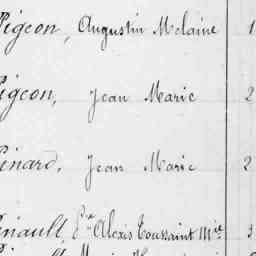 Pigeon, Augustin Melaine 1
Pigeon, Jean Marie 2
Pinard, Jean Marie 2
inault, Alexis Toussaint Mie 3